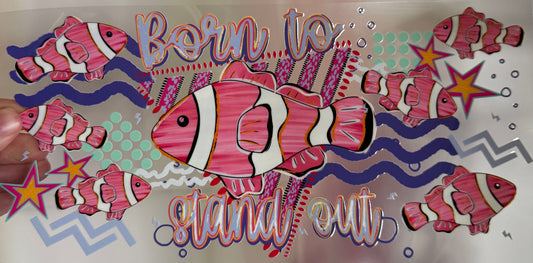 Born to
stand out